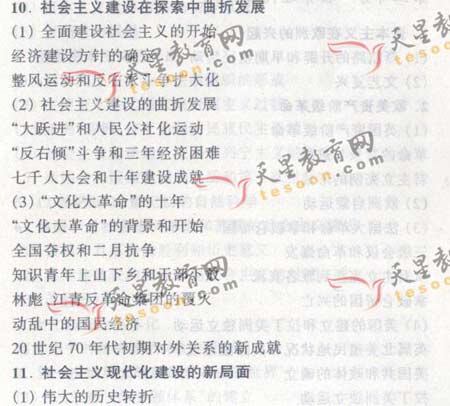 10. 社会主义建设在探索中曲折发展
(1) 全面建设社会主义的开始
经济建设方针的确定
整风运动和反右派斗争扩大化
(2) 社会主义建设的曲折发展
“大跃进”和人民公社化运动
“反右倾”斗争和三年经济困难
七千人大会和十年建设成就
(3) “文化大革命”的十年
“文化大革命”的背景和开始
全国夺权和二月抗争
知识青年上山下乡和干部下放
林彪、江青反革命集团的覆灭
动乱中的国民经济
20 世纪 70 年代初期对外关系的新成就
11. 社会主义现代化建设的新局面
(1) 伟大的历史转折
天星教育网
tesoon.com
天星教育网
tesoon.com
天星教育网
tesoon.com
天星教育网
tesoon.com
天星教育网
tesoon.com